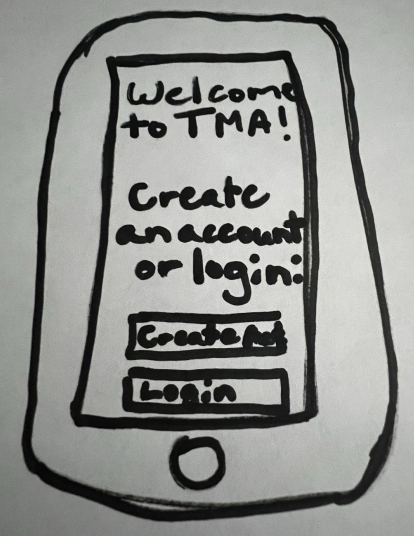 Welcome
to TMA!
Create
an account
or login:
Create Act
Login